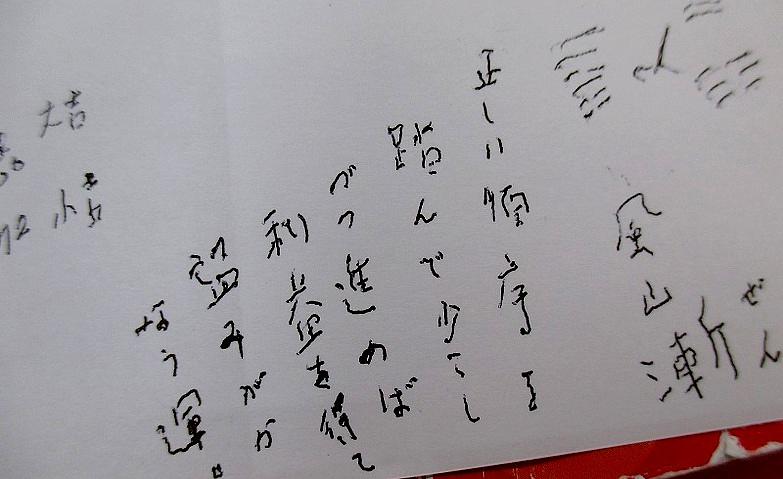 風山漸
ぜん
正しい順序を
踏んで少し
づつ進めば
利益を得て
望みがか
なう運
大吉
小吉